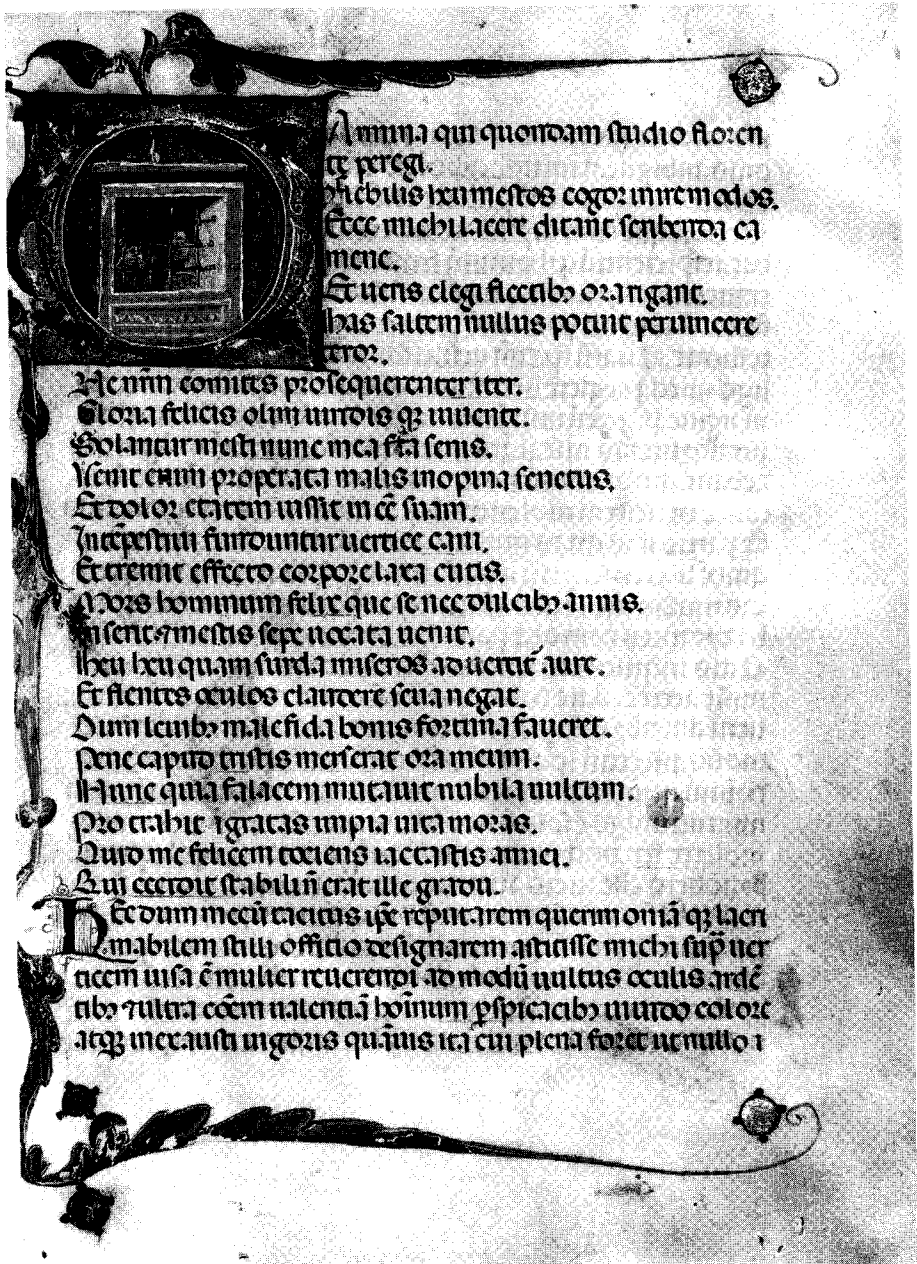 Armina qui quondam studio floren
te peregi.
Flebilis heu mestos cogor inire modos.
Ecce michi lacere dictant scribenda ca
mene.
Et ueris elegi fletibꝫ ora rigant.
has saltem nullus potuit peruincere
teror.
Ne nr̃m comites prosequerenter iter.
Gloria felicis olim uiridis qꝫ iuuente.
Solantur mesti nunc mea fata senis.
Venit enim properata malis inopina senectus.
Et dolor etatem iussit in eẽ suam.
Intẽpestiui funduntur uertice cani.
Et tremit effecto corpore laxa cutis.
Mors hominum felix que se nec dulcibꝫ annis.
Inserit ⁊ mestis sepe uocata uenit.
heu heu quam surda miseros aduertit᷑ aure.
Et flentes oculos claudere seua negat.
Dum leuibꝫ malefida bonis fortuna faueret.
Pene caput tristis merserat ora meum.
Nunc quia falacem mutauit nubila uultum.
Protrahit igratas impia uita moras.
Quid me felicem tociens iactastis amici.
Qui cecidit stabili nͦ erat ille gradu.
Hec dum mecũ tacitus ip̃e reputarem querimoniã qꝫ lacri
mabilem stili officio designarem astitisse michi sup̃ uer
ticem uisa ẽ mulier reuerendi admodũ uultus oculis ardẽ
tibꝫ ⁊ ultra cõem ualentiã hoĩnum ꝑspicacibꝫ uiuido colore
atqꝫ inexausti uigoris quãuis ita eui plena foret ut nullo